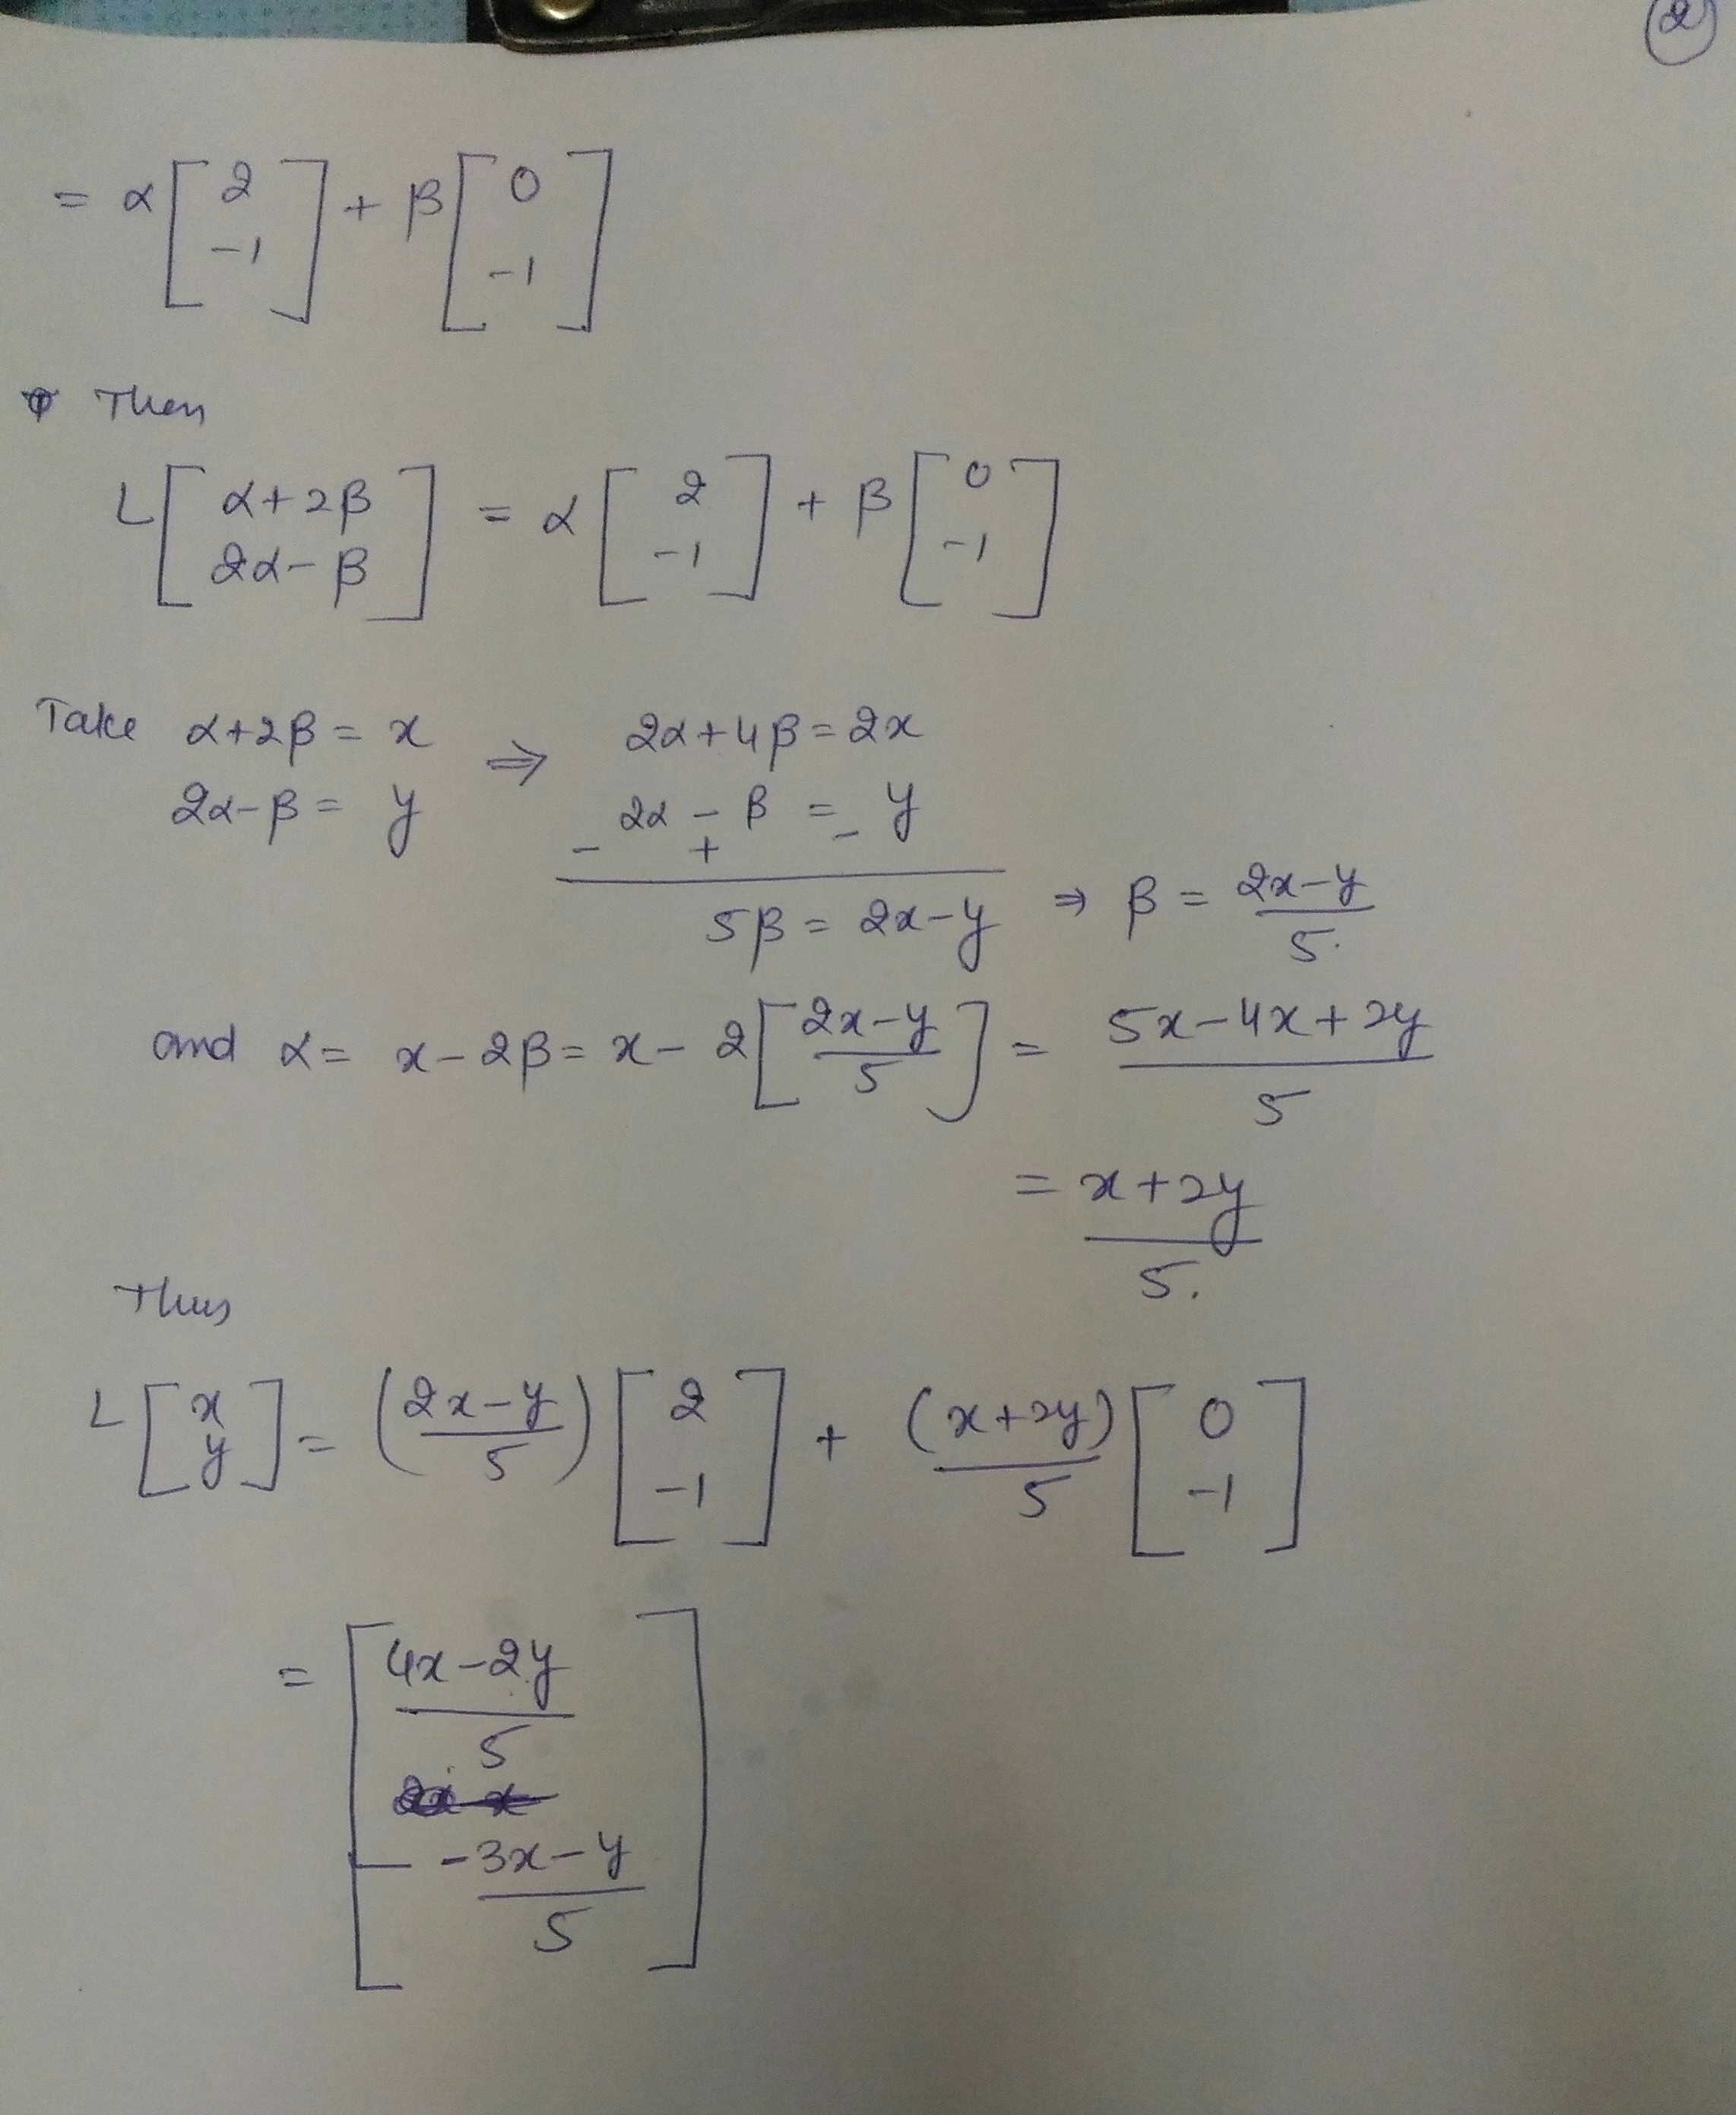 2
= α [ 2 -1 ] + β [ 0 -1 ]
Then
L [ α+2β 2α-β ] = α [ 2 -1 ] + β [ 0 -1 ]
Take α+2β = x ⇒ 2α+4β = 2x
2α-β = y 2α - β = y
- + -
5β = 2x-y ⇒ β = (2x-y)/5.
and α = x-2β = x - 2 [ (2x-y)/5 ] = (5x-4x+2y)/5
= (x+2y)/5.
Thus
L [ x y ] = ((2x-y)/5) [ 2 -1 ] + (x+2y)/5 [ 0 -1 ]
= [ (4x-2y)/5
(-3x-y)/5 ]